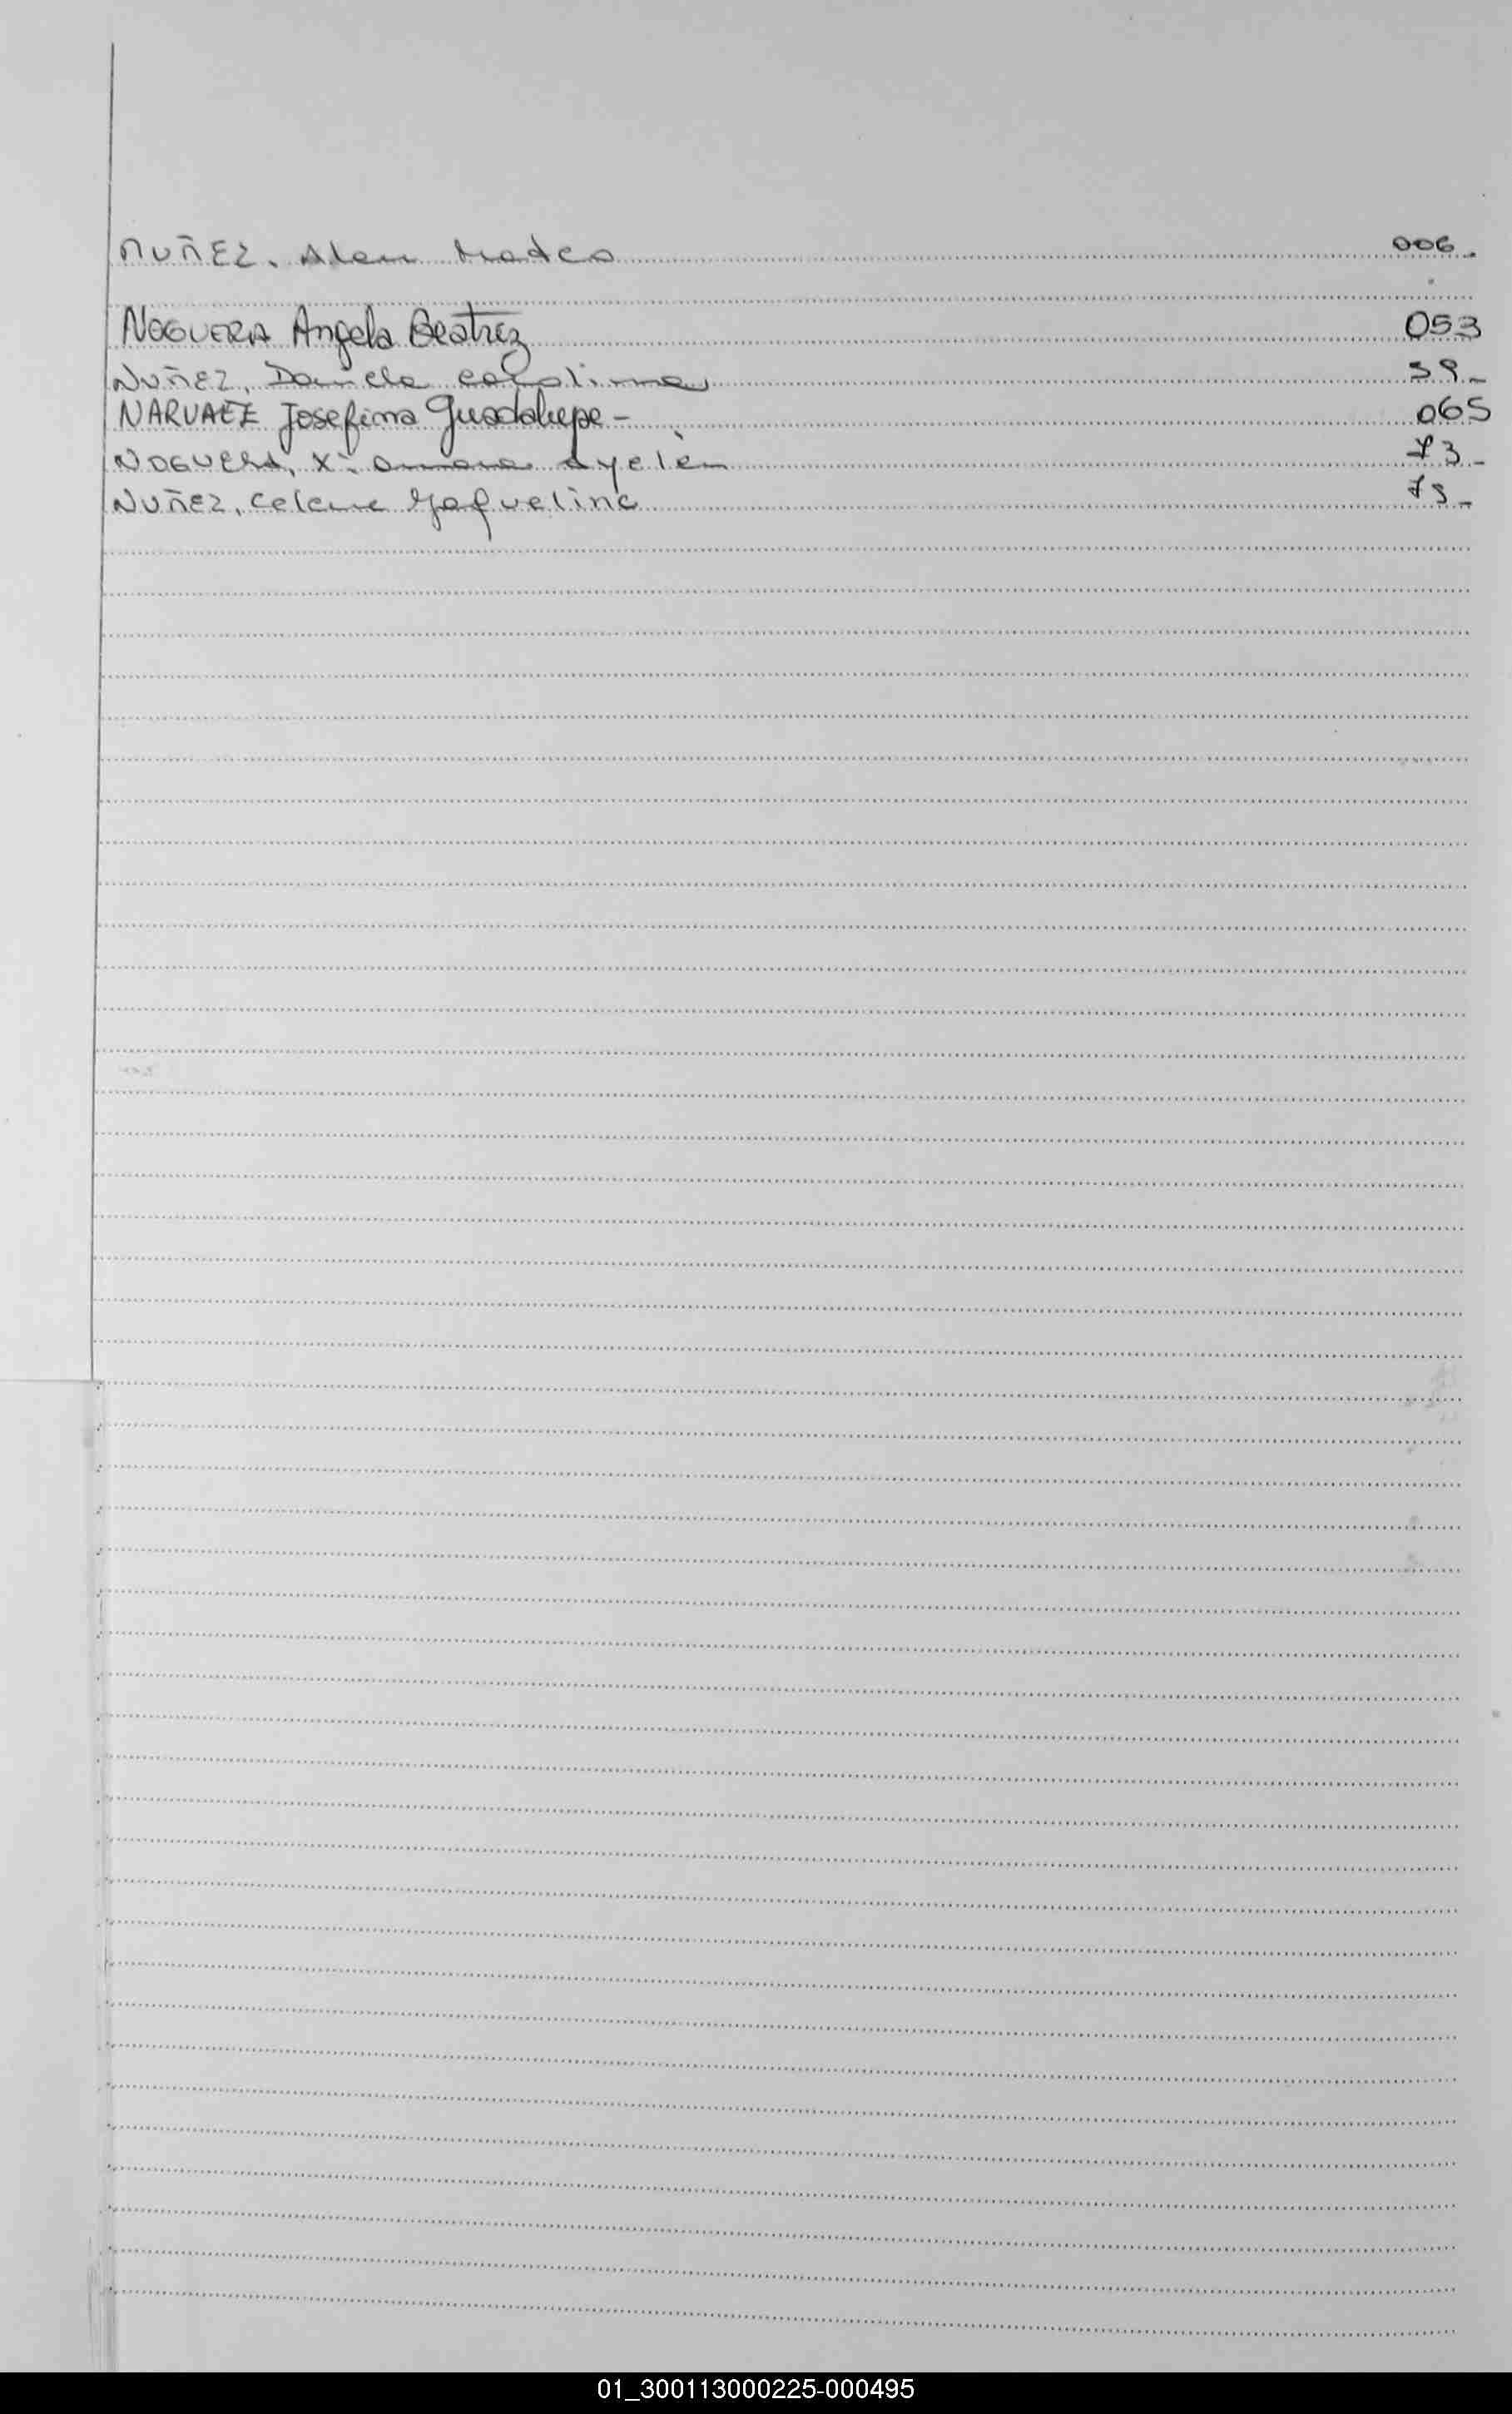 NUÑEZ, Alan Mateo 006-
NOGUERA Angela Beatriz 053
NUÑEZ, Daniela Carolina 59-
NARVAEZ Josefina Guadalupe- 065
NOGUERA, Xiomara Ayelèn 73-
NUÑEZ, Celene Jaquelina 75-
01_300113000225-000495